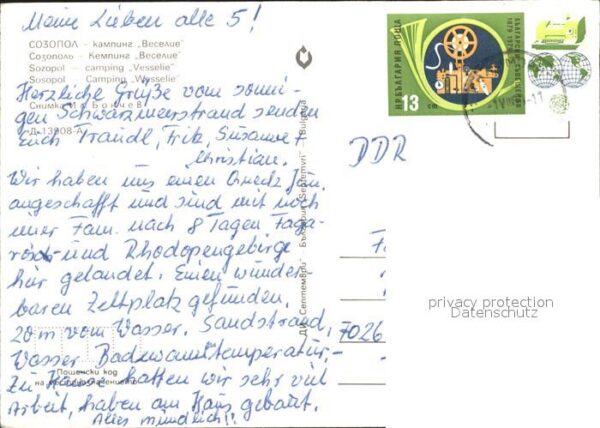 Meine Lieben alle 5!
СОЗОПОЛ – кампинг „Веселие"
Созополь – Кемпинг „Веселие"
Sozopol – camping „Vesselie"
Sosopol – Camping „Wesselie"
Herzliche Grüße vom sonni-
gen Schwarzmeerstrand senden
Снимка
Euch Traudl, Fritz, Susanne +
Д-13908-А
Christian.
Wir haben uns einen
angeschafft und sind mit noch
einer Fam. nach 8 Tagen Faga-
rasch und Rhodopengebirge
hier gelandet. Einen wunder-
baren Zeltplatz gefunden,
20 m vom Wasser. Sandstrand,
Wasser Badewannentemperatur,-
Пощенски код
Zu Hause hatten wir sehr viel
Arbeit, haben am Haus gebaut.
Alles mündlich!!
ДИ „Септември" България „Septemvri" Bulgaria
DDR
7026
НР БЪЛГАРИЯ ПОЩА
13
1879 1979
privacy protection
Datenschutz